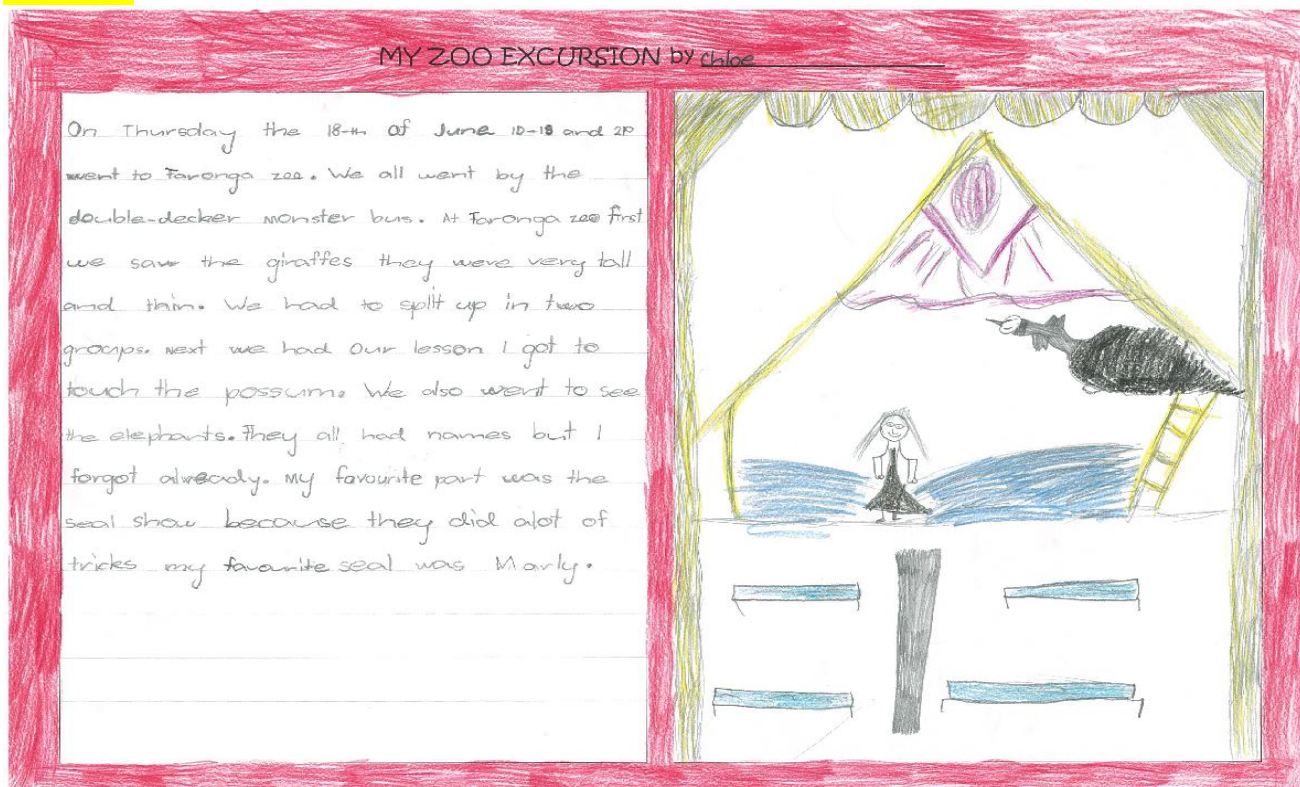 MY ZOO EXCURSION by Chloe
On Thursday the 18-th of June 1D-1S and 2P
went to Taronga zoo. We all went by the
double-decker monster bus. At Taronga zoo first
we saw the giraffes they were very tall
and thin. We had to split up in two
groups. Next we had Our lesson I got to
touch the possum. We also went to see
the elephants. They all had names but I
forgot already. My favourite part was the
seal show because they did alot of
tricks my favourite seal was Marly.